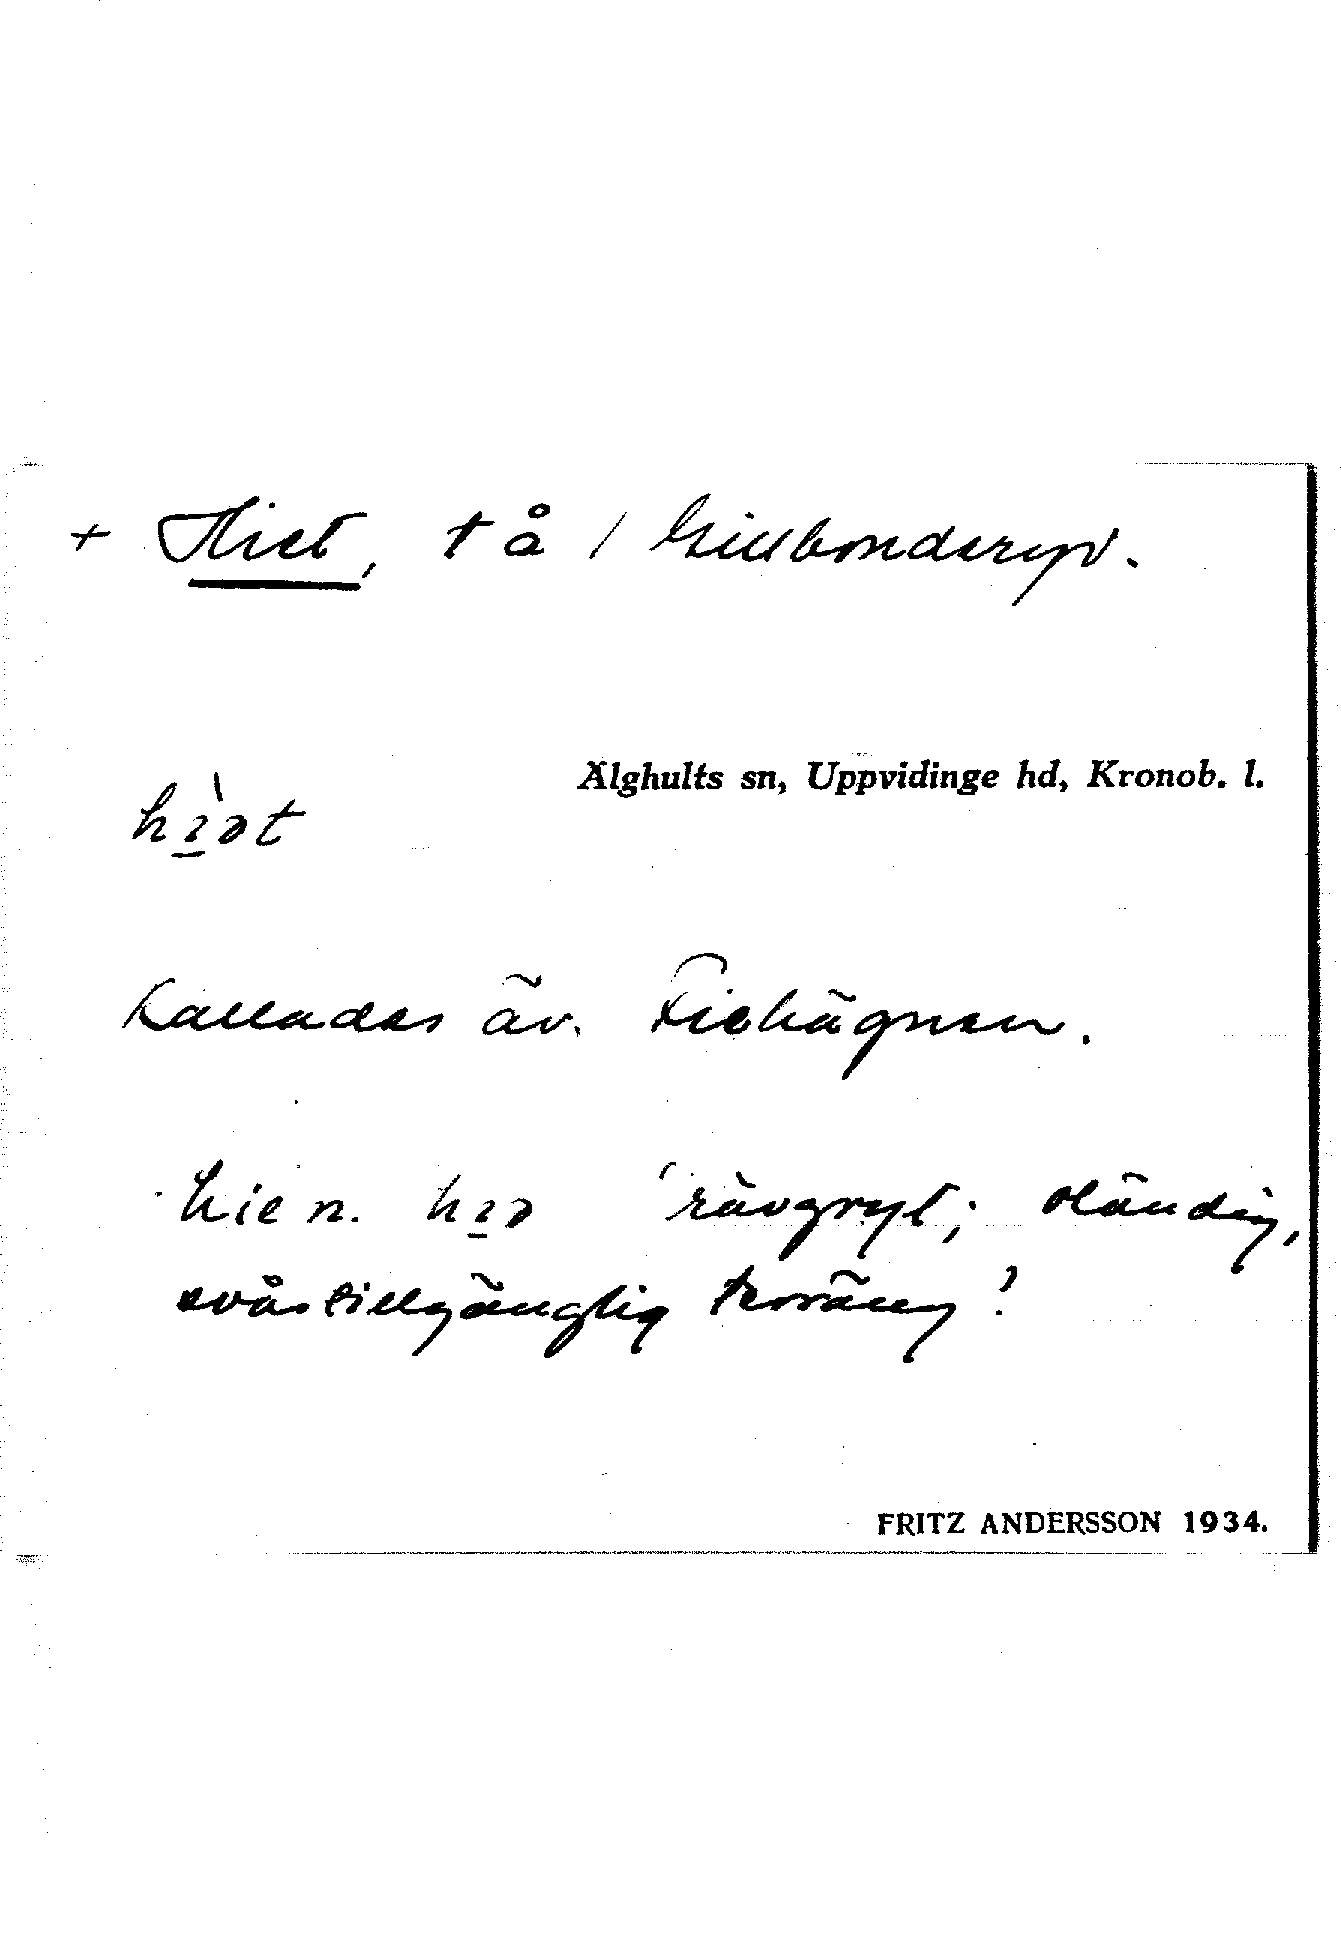 + Hiet, tå / Gillbonderyd.
Älghults sn, Uppvidinge hd, Kronob. l.
hìət
Kallades äv. Fiehägnen.
hie n. hiə 'rävgryt; oländig,
svårtillgänglig terräng'
FRITZ ANDERSSON 1934.